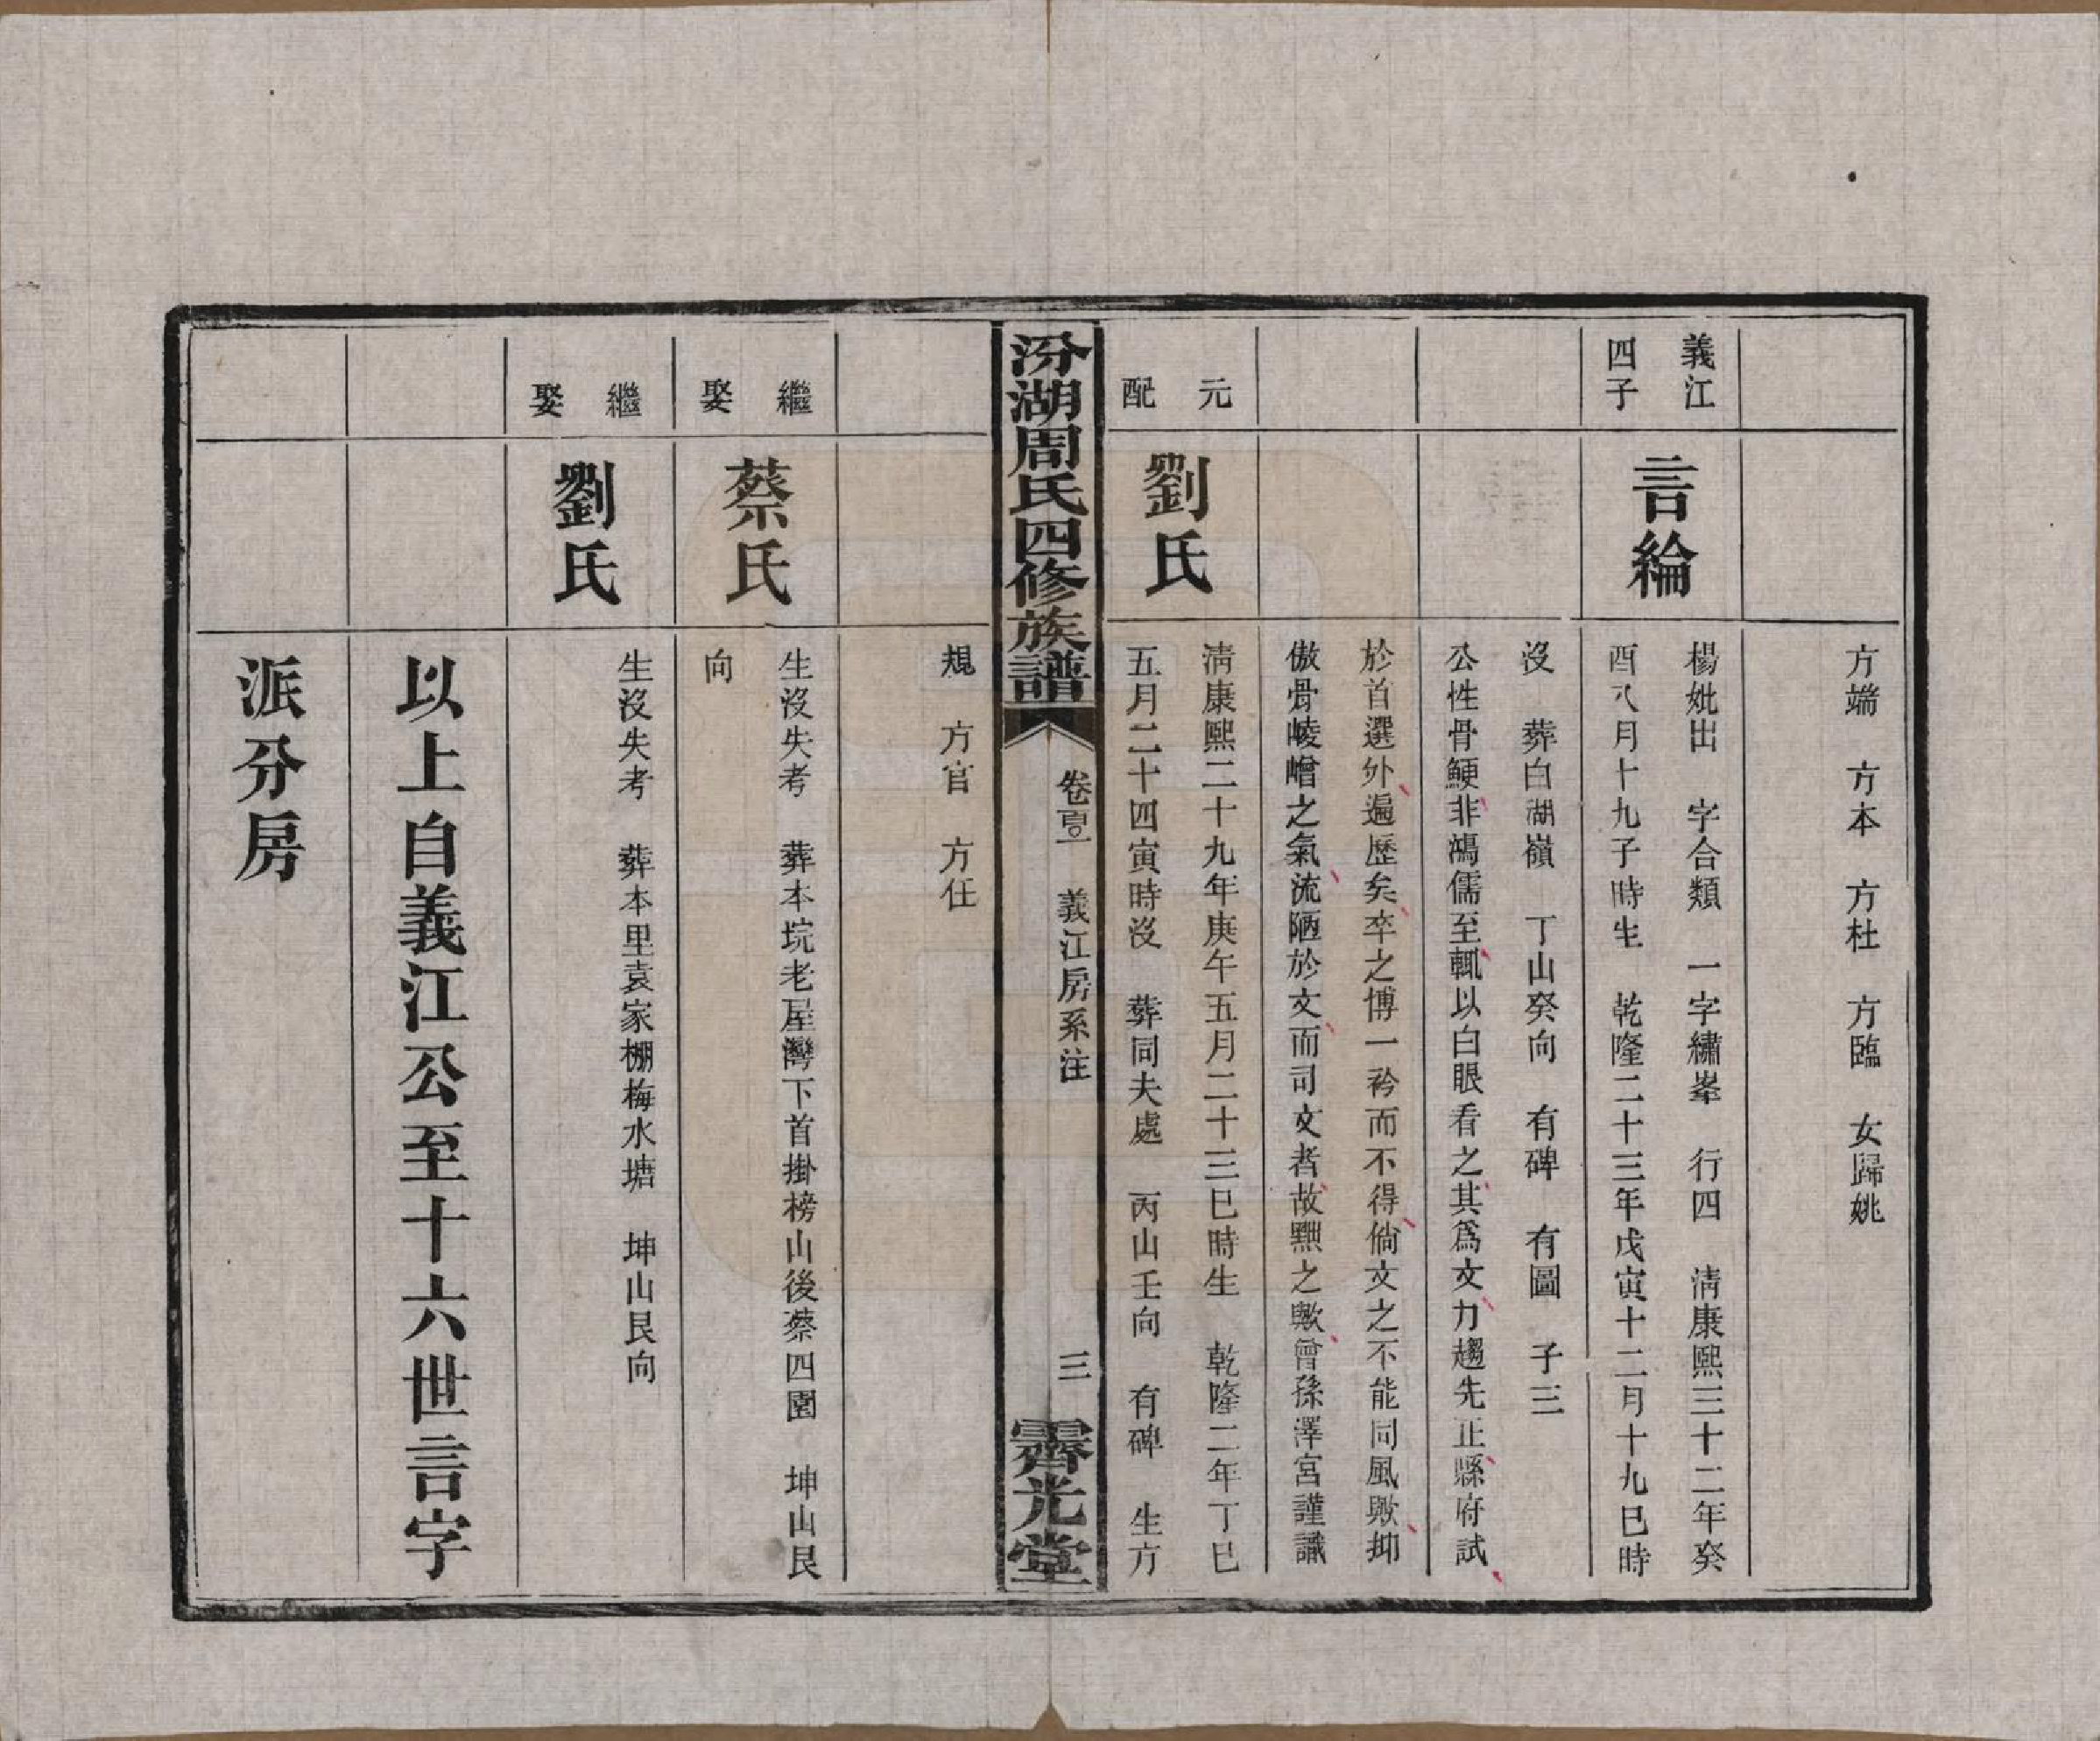 方端　方本　方杜　方臨　女歸姚
義江
四子
言綸
楊妣出　字合類　一字繡峯　行四　清康熙三十二年癸
酉八月十九子時生　乾隆二十三年戊寅十二月十九巳時
沒　葬白湖嶺　丁山癸向　有碑　有圖　子三
公性骨鯁非鴻儒至輒以白眼看之其爲文力趨先正縣府試
於首選外遍歷矣卒之博一衿而不得倘文之不能同風歟抑
傲骨崚嶒之氣流陋於文而司文者故黜之歟曾孫澤宮謹識
元
配
劉氏
清康熙二十九年庚午五月二十三巳時生　乾隆二年丁巳
五月二十四寅時沒　葬同夫處　丙山壬向　有碑　生方
汾湖周氏四修族譜
義江房系注
三
霽光堂
規　方官　方任
繼
娶
蔡氏
生沒失考　葬本垸老屋灣下首掛榜山後蔡四園　坤山艮
向
繼
娶
劉氏
生沒失考　葬本里袁家棚梅水塘　坤山艮向
以上自義江公至十六世言字
派分房